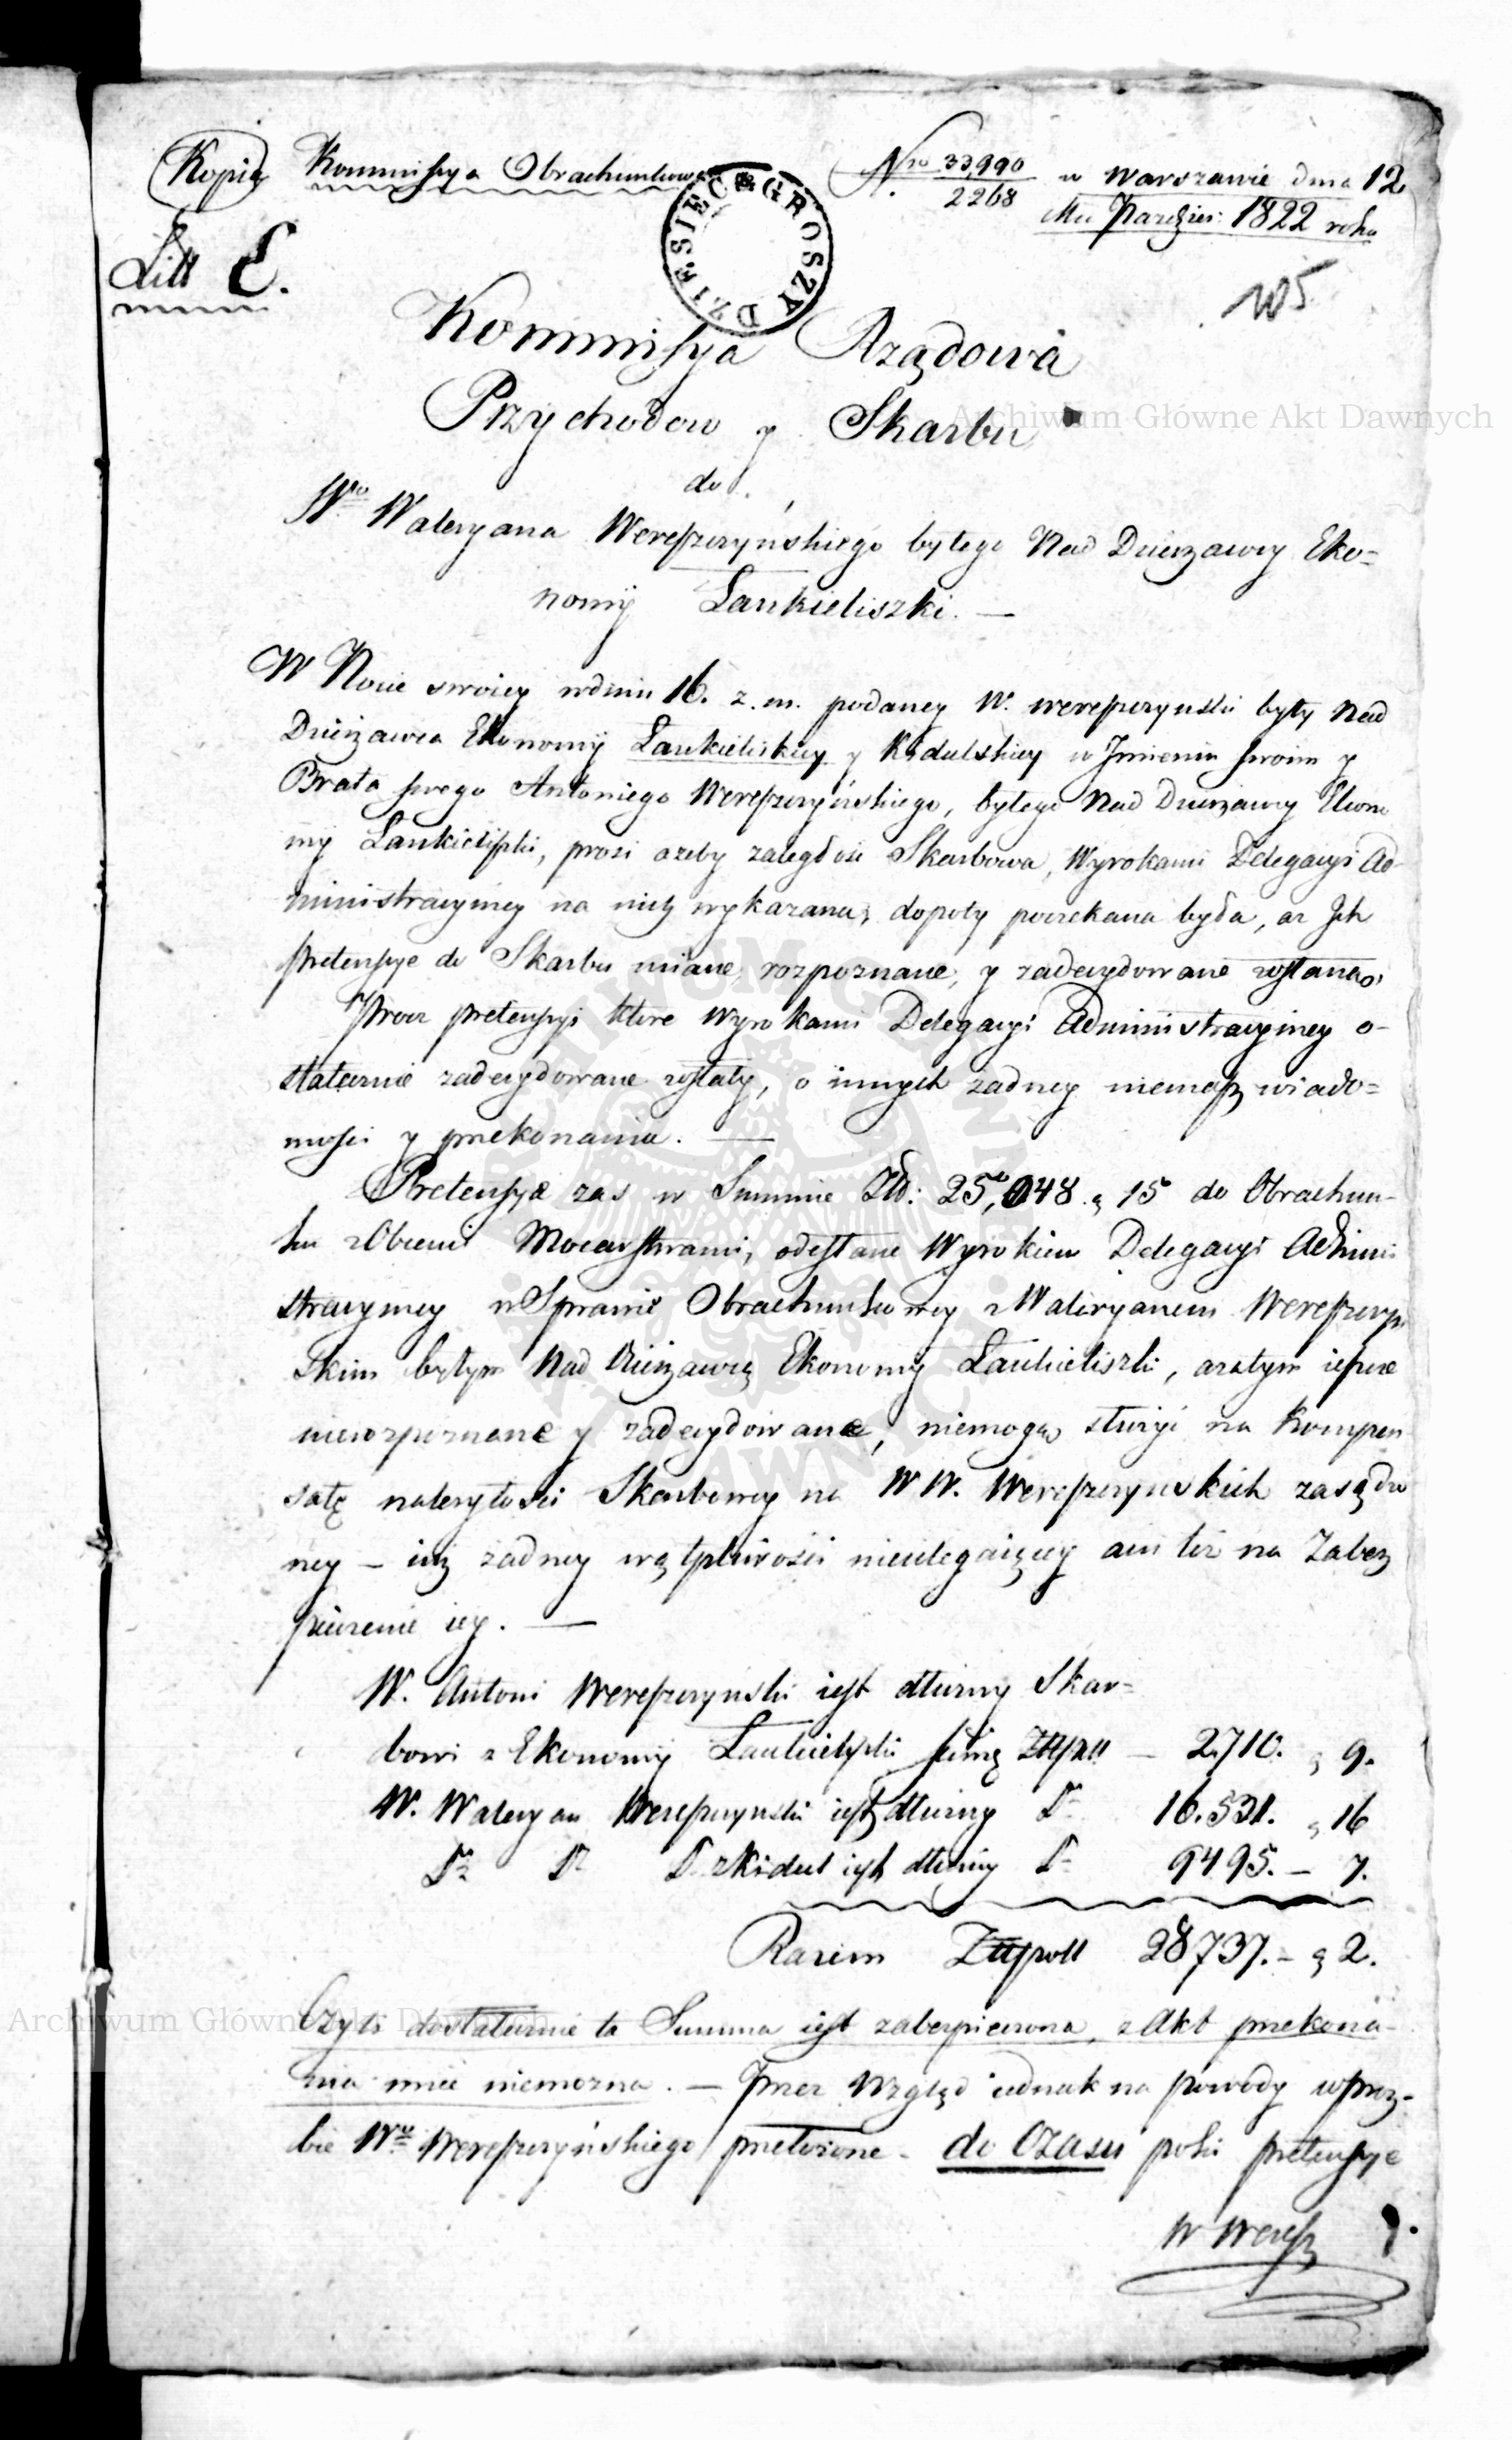 Kopia Kommissya Obrachunkowa Nro 33,990 w Warszawie dnia 12
2268 Mca Paździer: 1822 roku
DZIESIĘC GROSZY
Litt E.
105
Kommissya Rządowa
Przychodow y Skarbu
Archiwum Główne Akt Dawnych
do
Wo Waleryana Wereszczyńskiego byłego Nad Dzierzawcy Eko=
nomij Łankieliszki. —
W Nocie swoiey w dniu 16. z. m. podaney W. Wereszczynski były Nad
Dzierzawca Ekonomij Łankieliskiey y Kidulskiey w Jmieniu swoim y
Brata swego Antoniego Wereszczyńskiego, byłego Nad Dzierzawcy Ekono
mij Łankieliszki, prosi ażeby zaległość Skarbowa, Wyrokami Delegacyi Ad-
ministracyiney na nich wykazana, dopoty poczekana była, aż Jch
pretensye do Skarbu miane, rozpoznane, y zadecydowane zostaną.
Procz pretensyi ktore Wyrokami Delegacyi Administracyiney o-
statecznie zadecydowane zostały, o innych żadney niemasz wiado=
mości y przekonania. —
Pretensye zas w Summie Złp: 25,048 g 15 do Obrachun-
ku z Obcemi Mocarstwami, odesłane Wyrokiem Delegacyi Admini
stracyiney w Sprawie Obrachunkowey z Waleryanem Wereszczyn
skim byłym Nad Dzierzawcą Ekonomij Łankieliszki, a zatym ieszcze
nierozpoznane y zadecydowane, niemogą służyć na kompen
satę należytości Skarbowey na WW. Wereszczynskich zasądzo
ney — iuż żadney wątpliwości nieulegaiącey ani też na Zabez
pieczenie iey. —
W. Antoni Wereszczynski iest dłużny Skar=
bowi z Ekonomij Łankieliszki sumę Złpoll — 2.710. g 9.
W. Waleryan Wereszczynski iest dłużny Do 16.531. g 16
Do Do D. z Kidul iest dłużny Do 9495. — 7.
Razem Złpoll 28737. — g 2.
Archiwum Główne Akt Dawnych
Czyli dostatecznie ta Summa iest zabezpieczona, z Akt przekona-
nia mieć niemożna. — Przez Wzgląd iednak na powody w proz-
bie Wo Wereszczyńskiego przełożone — do Czasu poki pretensye
W Weresz